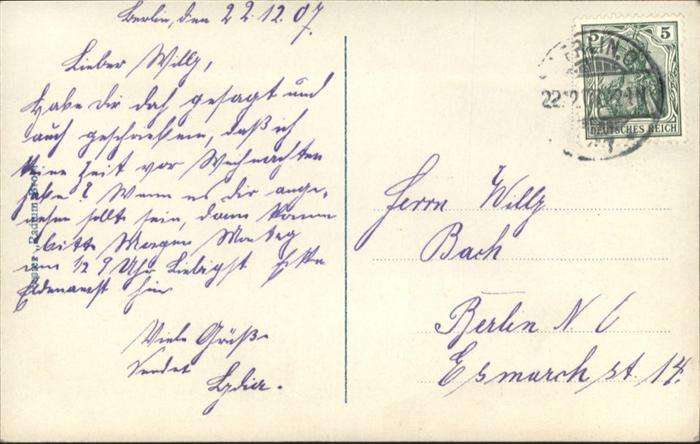 Berlin, den 22.12.07.
Lieber Willy,
Habe Dir doch gesagt und
auch geschrieben, daß ich
keine Zeit vor Weihnachten
habe! Wenn es Dir ange-
nehm sollte sein, dann komme
bitte Morgen Montag
um ½ 9 Uhr Liebigst Ecke
Eldenaerst hin
Viele Grüße
sendet
Lydia.
5
DEUTSCHES REICH
BERLIN
22.12.07
Herrn Willy
Bach
Berlin N
Esmarchst. 14.